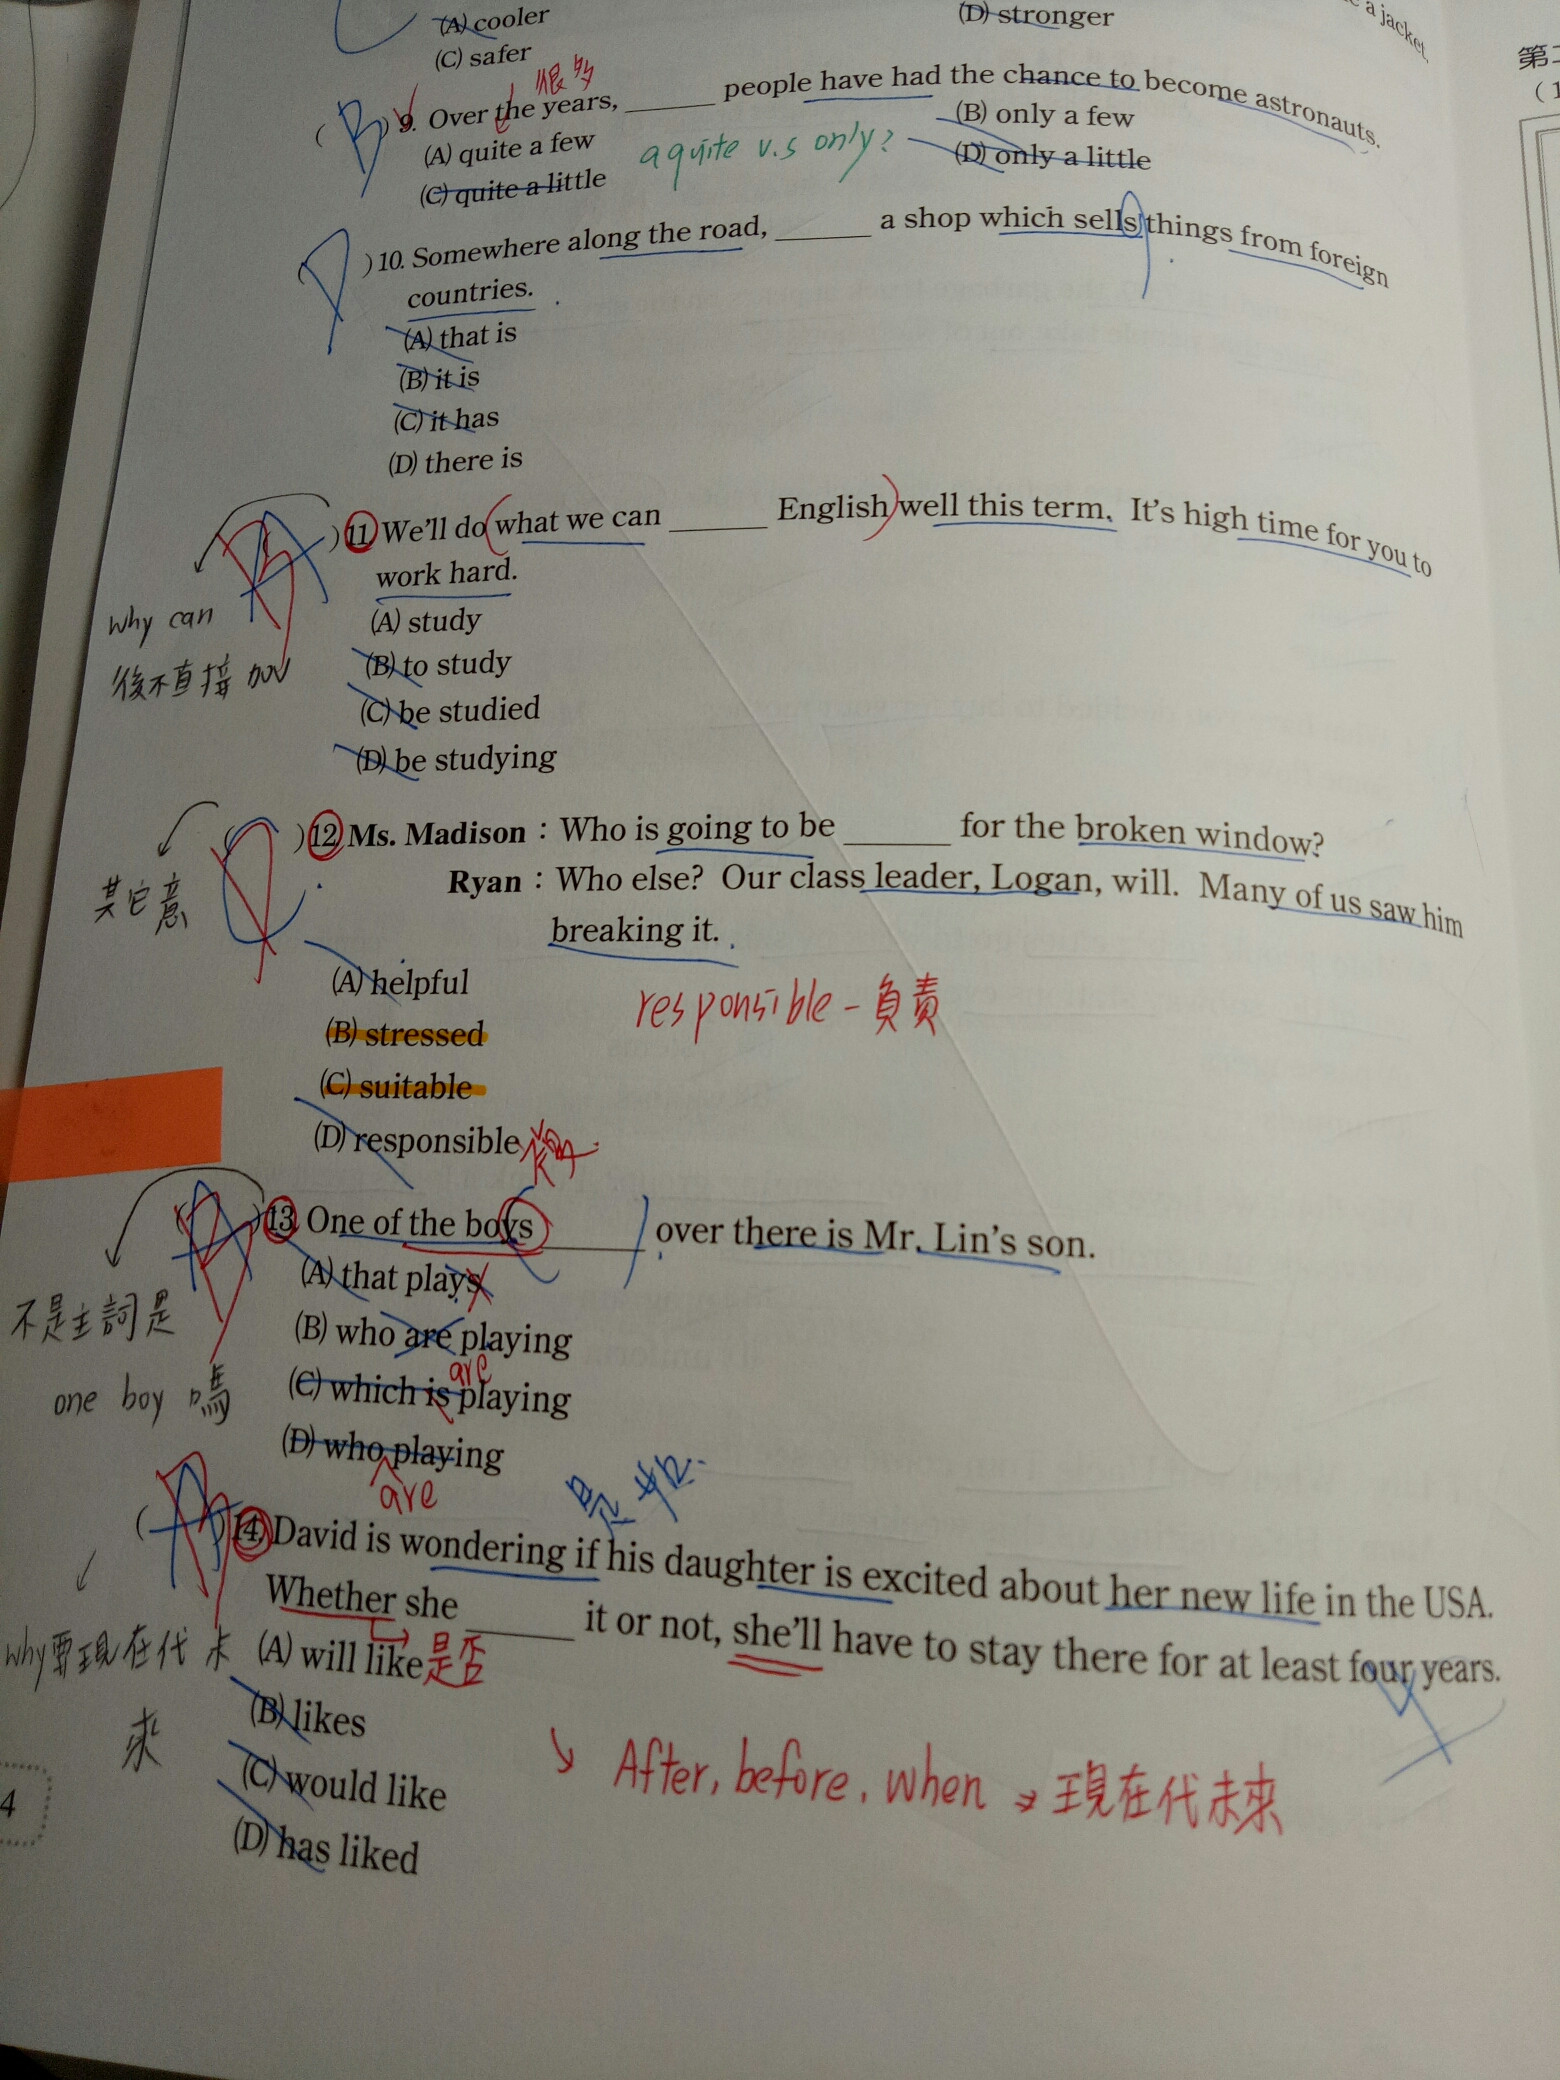 (A) cooler
(D) stronger
a jacket.
(C) safer
很多
( B ) 9. Over the years, ______ people have had the chance to become astronauts.
(A) quite a few
(B) only a few
(C) quite a little
(D) only a little
a quite v.s only?
10. Somewhere along the road, ______ a shop which sells things from foreign
countries.
(A) that is
(B) it is
(C) it has
(D) there is
) 11. We'll do what we can ______ English well this term. It's high time for you to
work hard.
(A) study
(B) to study
(C) be studied
(D) be studying
why can
後不直接加V
) 12. Ms. Madison：Who is going to be ______ for the broken window?
Ryan：Who else? Our class leader, Logan, will. Many of us saw him
breaking it.
(A) helpful
(B) stressed
(C) suitable
(D) responsible
其它意
responsible - 負責
) 13. One of the boys ______ over there is Mr. Lin's son.
(A) that plays
(B) who are playing
(C) which is playing
are
(D) who playing
are
不是主詞是
one boy 嗎
( ) 14. David is wondering if his daughter is excited about her new life in the USA.
Whether she ______ it or not, she'll have to stay there for at least four years.
(A) will like
是否
(B) likes
(C) would like
(D) has liked
why要現在代未
來
After, before, when → 現在代未來
4
第二
(1